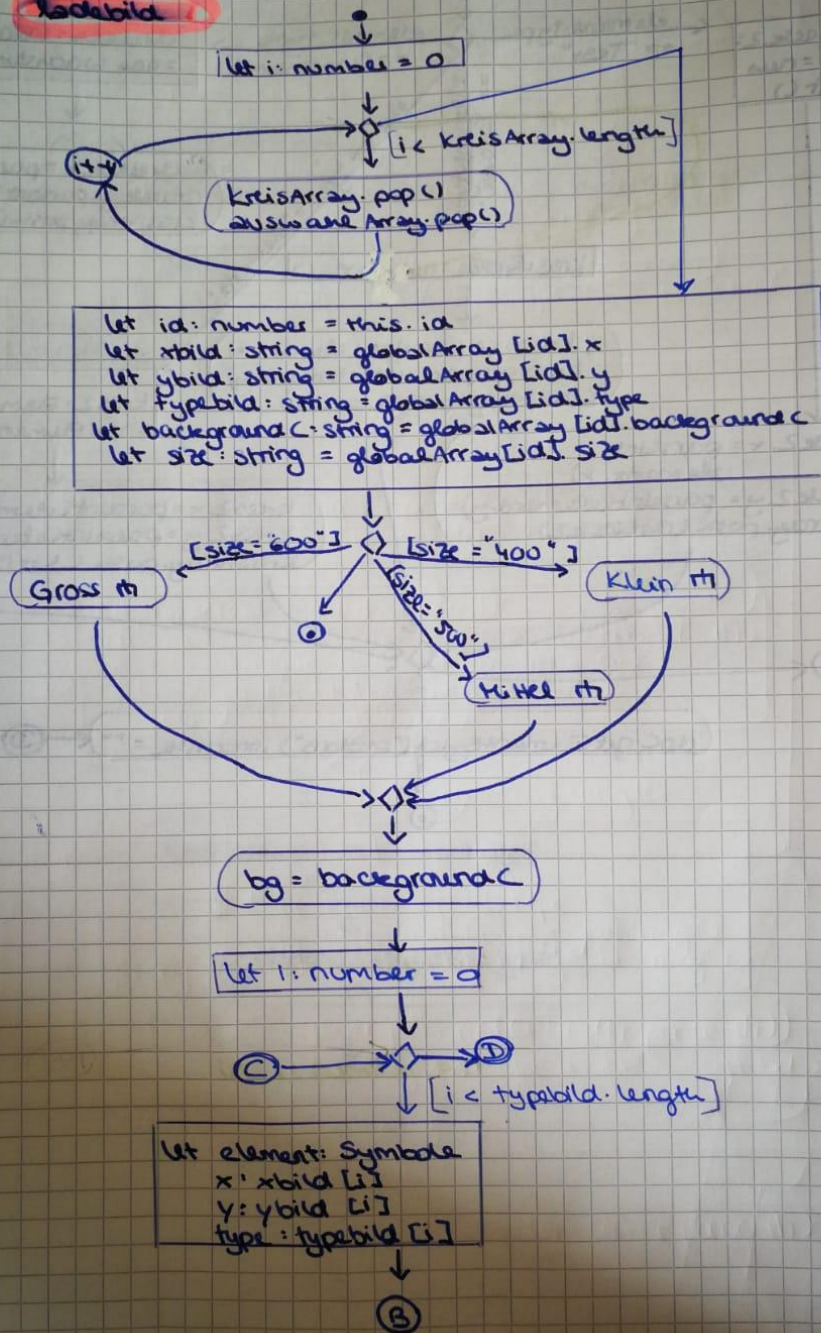 ladebild
let i: number = 0
[i < kreisArray.length]
i++
kreisArray.pop()
auswahl Array.pop()
let id: number = this.id
let xbild: string = globalArray [id].x
let ybild: string = globalArray [id].y
let typebild: string = globalArray [id].type
let backgroundC: string = globalArray [id].backgroundC
let size: string = globalArray[id].size
[size="600"]
[size="400"]
Gross
[size="500"]
Klein
Mittel
bg = backgroundC
let i: number = 0
C
D
[i < typebild.length]
let element: Symbole
x: xbild [i]
y: ybild [i]
type: typebild [i]
B